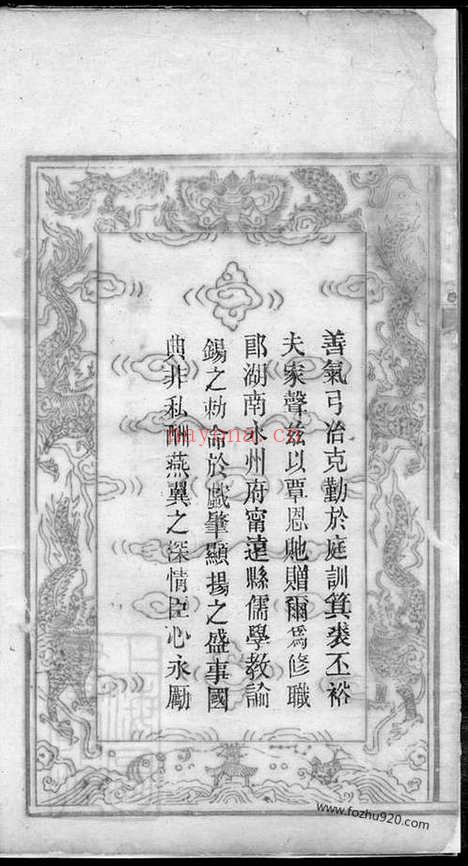 善氣弓冶克勤於庭訓箕裘丕裕
夫家聲兹以覃恩貤贈爾爲修職
郎湖南永州府甯遠縣儒學教諭
錫之勅命於戲肇顯揚之盛事國
典非私酬燕翼之深情臣心永勵
nayona.cn
www.fozhu920.com